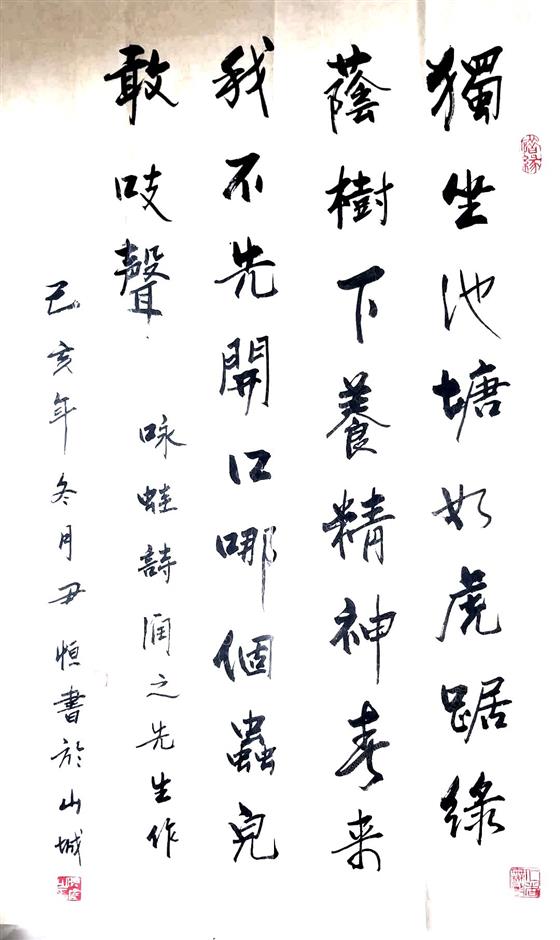 獨坐池塘如虎踞綠
蔭樹下養精神春来
我不先開口哪個蟲兒
敢吱聲
咏蛙詩潤之先生作
己亥年冬月尹恒書於山城